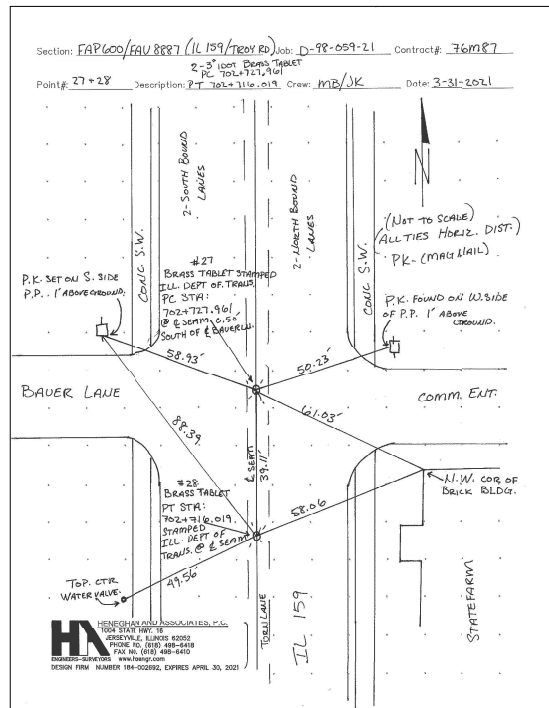 Section: FAP 600/FAU 8887 (IL 159/TROY RD) Job: D-98-059-21 Contract#: 76M87
2-3" IDOT BRASS TABLET
PC 702+727.961
Point#: 27+28 Description: PT 702+716.019 Crew: MB/JK Date: 3-31-2021
2-SOUTH BOUND
LANES
2-NORTH BOUND
LANES
CONC S.W.
CONC S.W.
N
(NOT TO SCALE)
ALL TIES HORIZ. DIST.)
PK- (MAG NAIL)
#27
BRASS TABLET STAMPED
ILL. DEPT OF. TRANS.
PC STA:
702+727.961
@ ℄ SEAM 0.50'
SOUTH OF ℄ BAUER LN.
P.K. SET ON S. SIDE
P.P. 1' ABOVE GROUND.
P.K. FOUND ON W. SIDE
OF P.P. 1' ABOVE
GROUND.
58.93'
50.23'
BAUER LANE
COMM. ENT.
61.03'
88.39
℄ SEAM
39.11'
58.06
N.W. COR OF
BRICK BLDG.
#28
BRASS TABLET
PT STA:
702+716.019
STAMPED
ILL. DEPT OF
TRANS. @ ℄ SEAM
49.56
TOP. CTR
WATER VALVE.
TURN LANE
IL 159
STATEFARM
HA
HENEGHAN AND ASSOCIATES, P.C.
1004 STATE HWY. 16
JERSEYVILLE, ILLINOIS 62052
PHONE NO. (618) 498-6418
FAX NO. (618) 498-6410
ENGINEERS-SURVEYORS www.haengr.com
DESIGN FIRM NUMBER 184-002692, EXPIRES APRIL 30, 2021